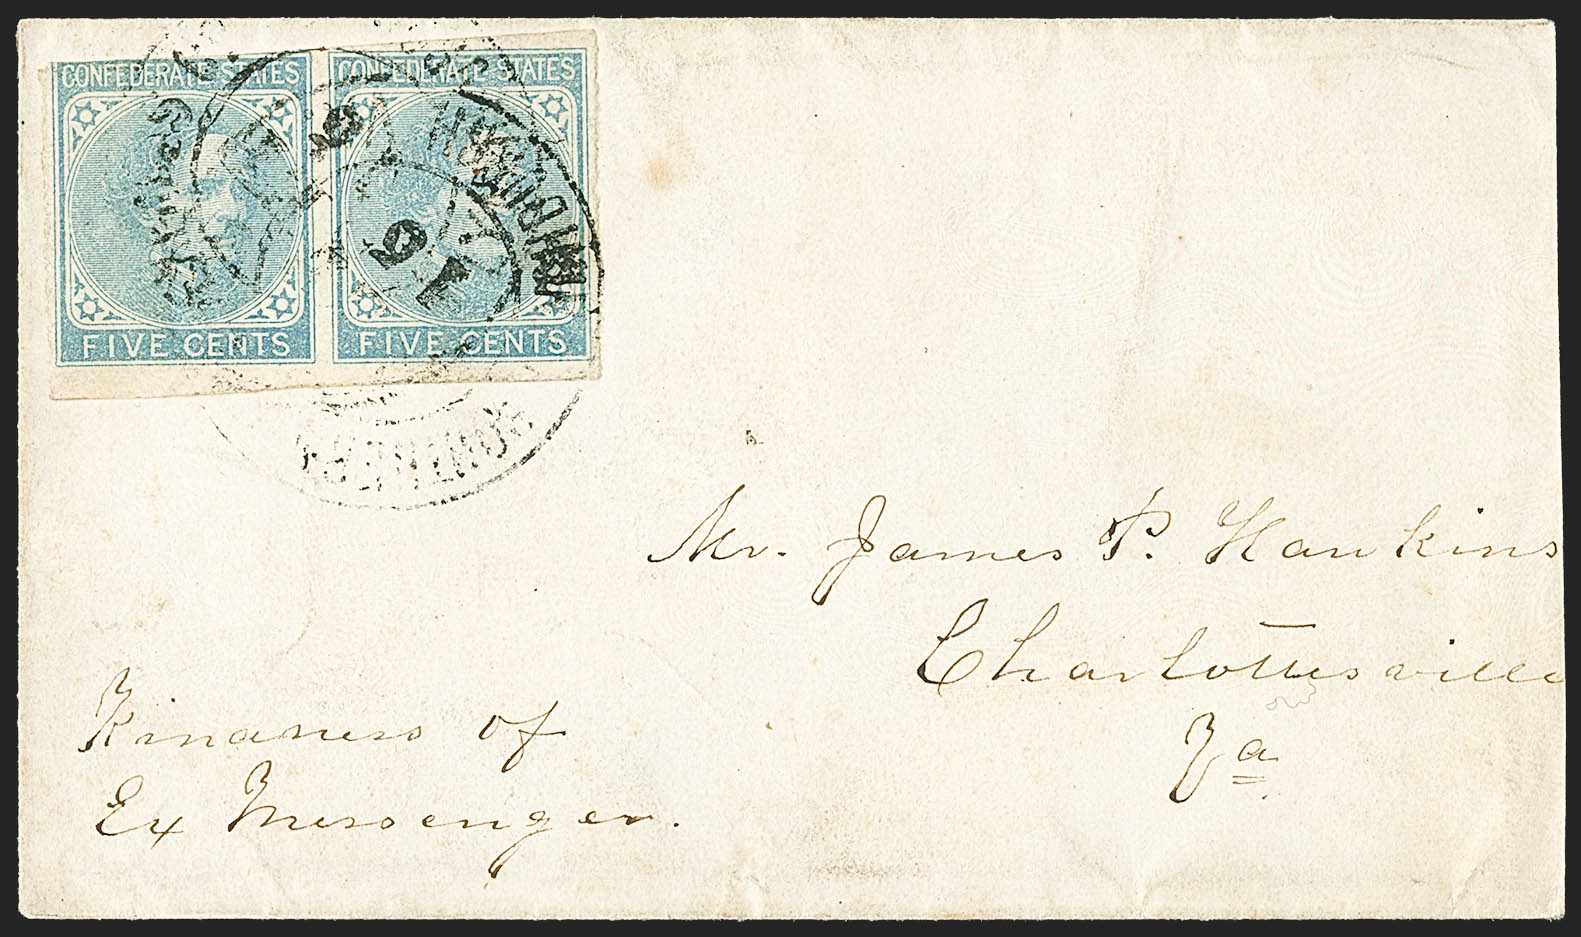 CONFEDERATE STATES
FIVE CENTS
CONFEDERATE STATES
FIVE CENTS
Mr. James P. Hawkins
Charlottesville
Va
Kindness of
Ex Messenger.